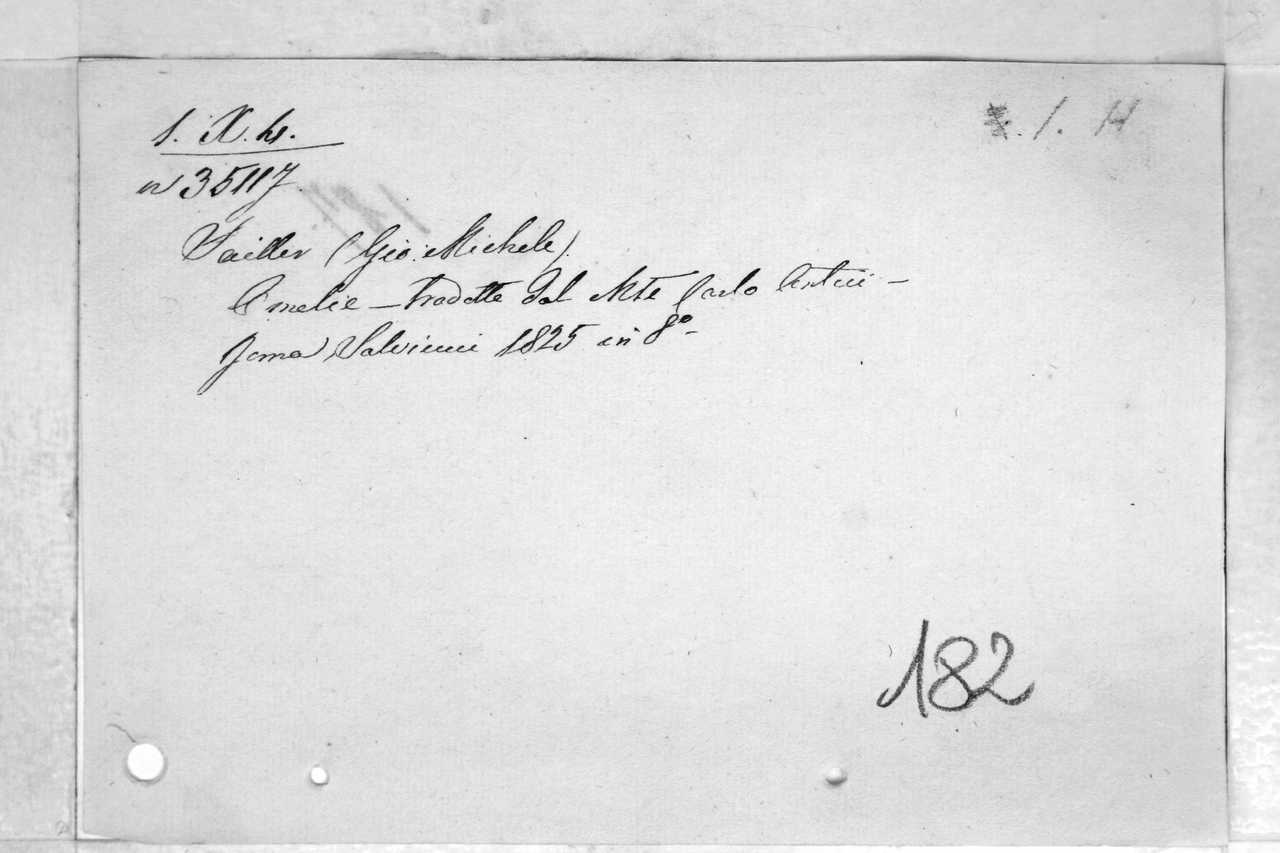 1. X. h.
1. H
n 35117
Sailler (Gio: Michele)
Omelie – tradotte dal Carlo –
Roma Salviucci 1825 in 8º
182